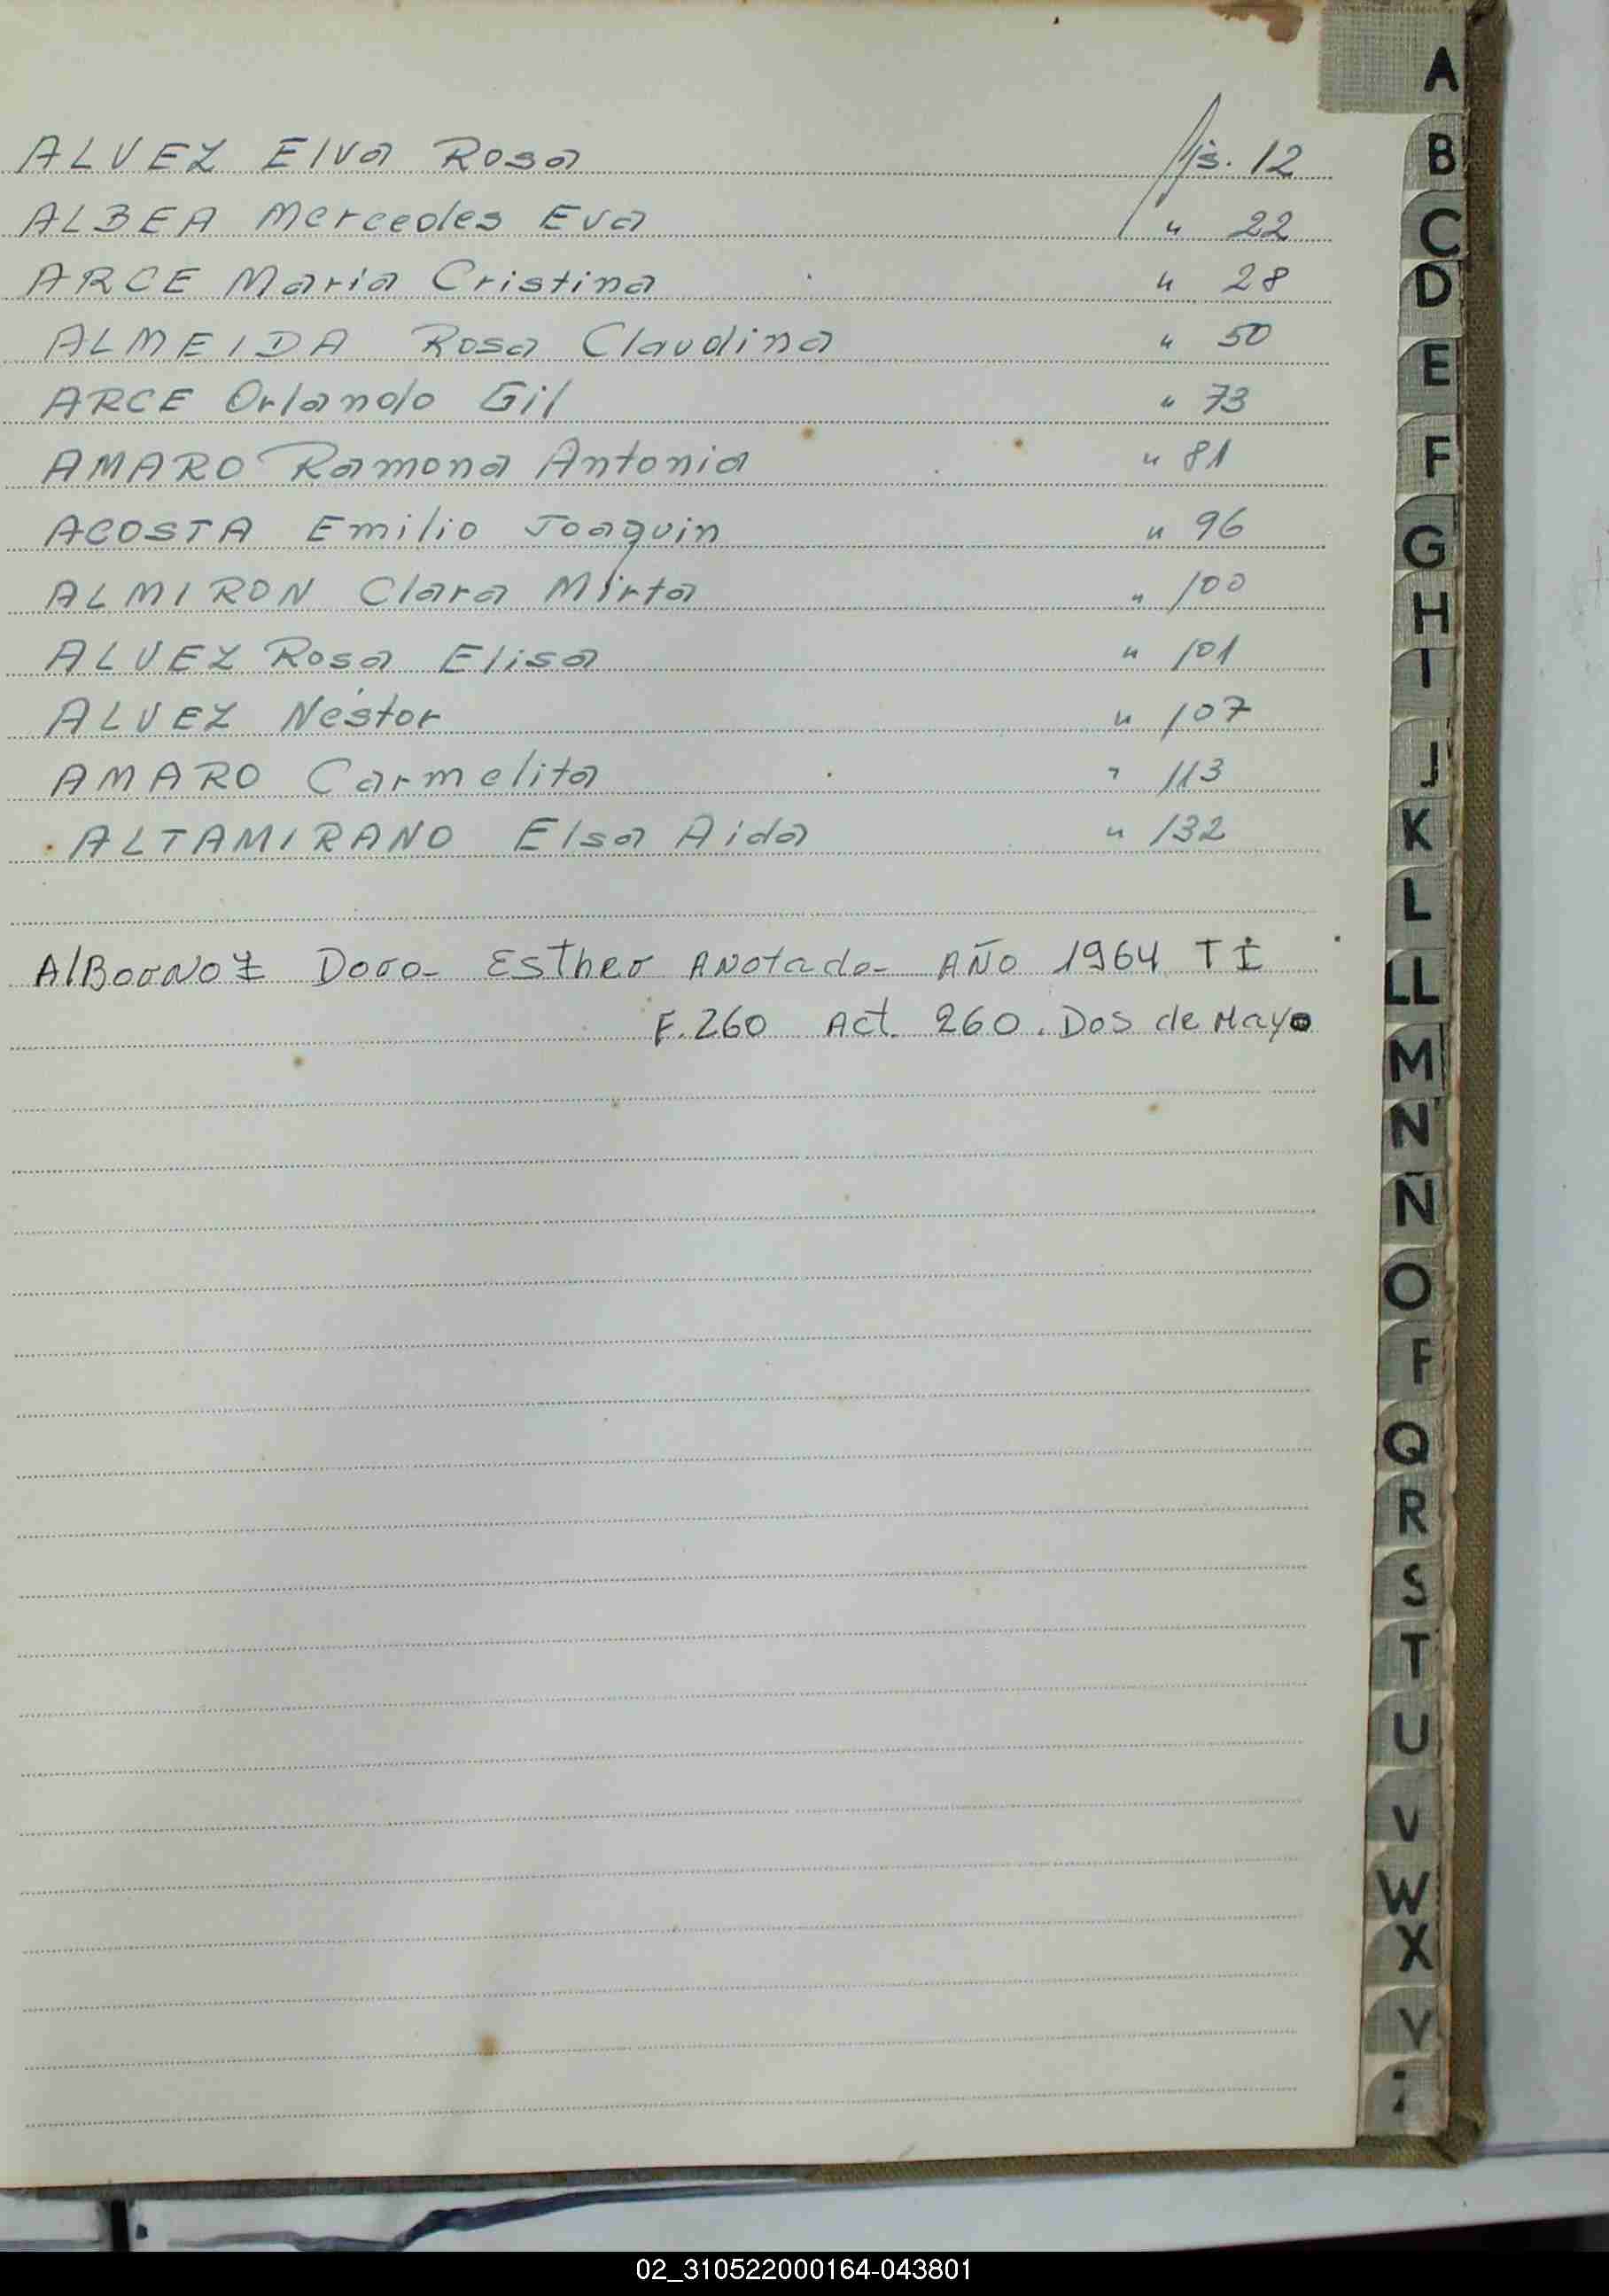 ALVEZ Elva Rosa fjs. 12
ALBEA Mercedes Eva " 22
ARCE Maria Cristina " 28
ALMEIDA Rosa Claudina " 50
ARCE Orlando Gil " 73
AMARO Ramona Antonia " 81
ACOSTA Emilio Joaquin " 96
ALMIRON Clara Mirta " 100
ALVEZ Rosa Elisa " 101
ALVEZ Néstor " 107
AMARO Carmelita " 113
ALTAMIRANO Elsa Aida " 132
AlBorNoz Dora Esther ANotada AÑO 1964 T I
F. 260 Act. 260. Dos de Mayo
A
B
C
D
E
F
G
H
I
J
K
L
LL
M
N
N
O
P
Q
R
S
T
U
V
W
X
Y
Z
02_310522000164-043801